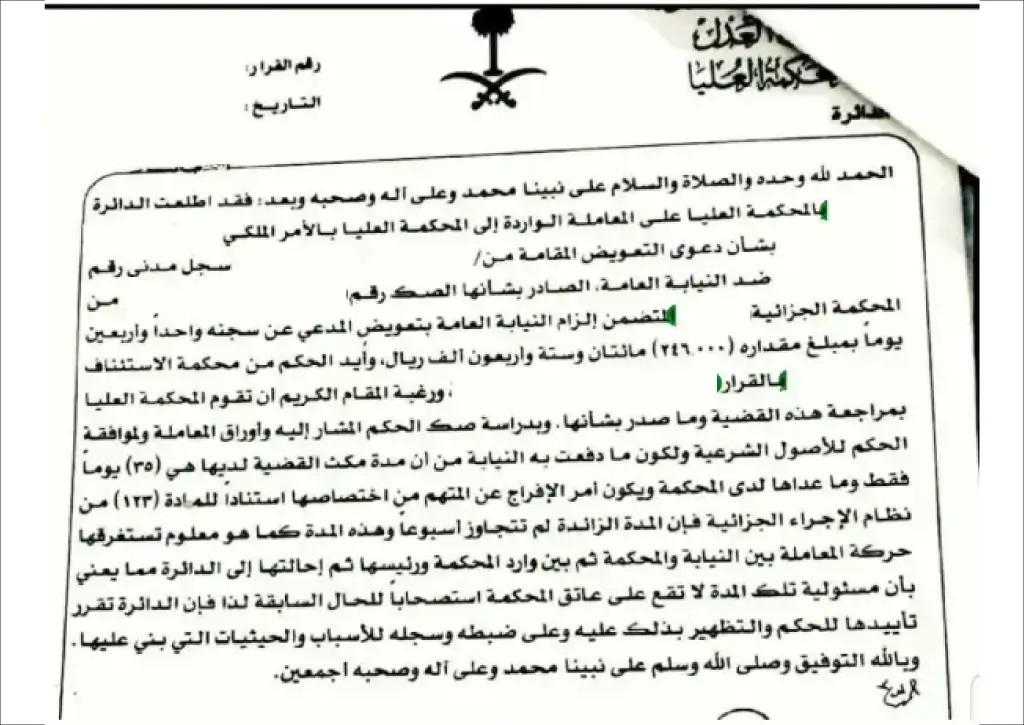 العدل
المحكمة العليا
الدائرة
رقم القرار:
التاريخ:
الحمد لله وحده والصلاة والسلام على نبينا محمد وعلى آله وصحبه وبعد: فقد اطلعت الدائرة
بالمحكمة العليا على المعاملة الواردة إلى المحكمة العليا بالأمر الملكي
بشأن دعوى التعويض المقامة من/ سجل مدني رقم
ضد النيابة العامة، الصادر بشأنها الصك رقم من
المحكمة الجزائية المتضمن إلزام النيابة العامة بتعويض المدعي عن سجنه واحداً وأربعين
يوماً بمبلغ مقداره (٢٤٦.٠٠٠) مائتان وستة وأربعون ألف ريال، وأيد الحكم من محكمة الاستئناف
بالقرار ، ورغبة المقام الكريم أن تقوم المحكمة العليا
بمراجعة هذه القضية وما صدر بشأنها. وبدراسة صك الحكم المشار إليه وأوراق المعاملة ولموافقة
الحكم للأصول الشرعية ولكون ما دفعت به النيابة من أن مدة مكث القضية لديها هي (٣٥) يوماً
فقط وما عداها لدى المحكمة ويكون أمر الإفراج عن المتهم من اختصاصها استناداً للمادة (١٢٣) من
نظام الإجراء الجزائية فإن المدة الزائدة لم تتجاوز أسبوعاً وهذه المدة كما هو معلوم تستغرقها
حركة المعاملة بين النيابة والمحكمة ثم بين وارد المحكمة ورئيسها ثم إحالتها إلى الدائرة مما يعني
بأن مسئولية تلك المدة لا تقع على عاتق المحكمة استصحاباً للحال السابقة لذا فإن الدائرة تقرر
تأييدها للحكم والتظهير بذلك عليه وعلى ضبطه وسجله للأسباب والحيثيات التي بني عليها.
وبالله التوفيق وصلى الله وسلم على نبينا محمد وعلى آله وصحبه أجمعين.